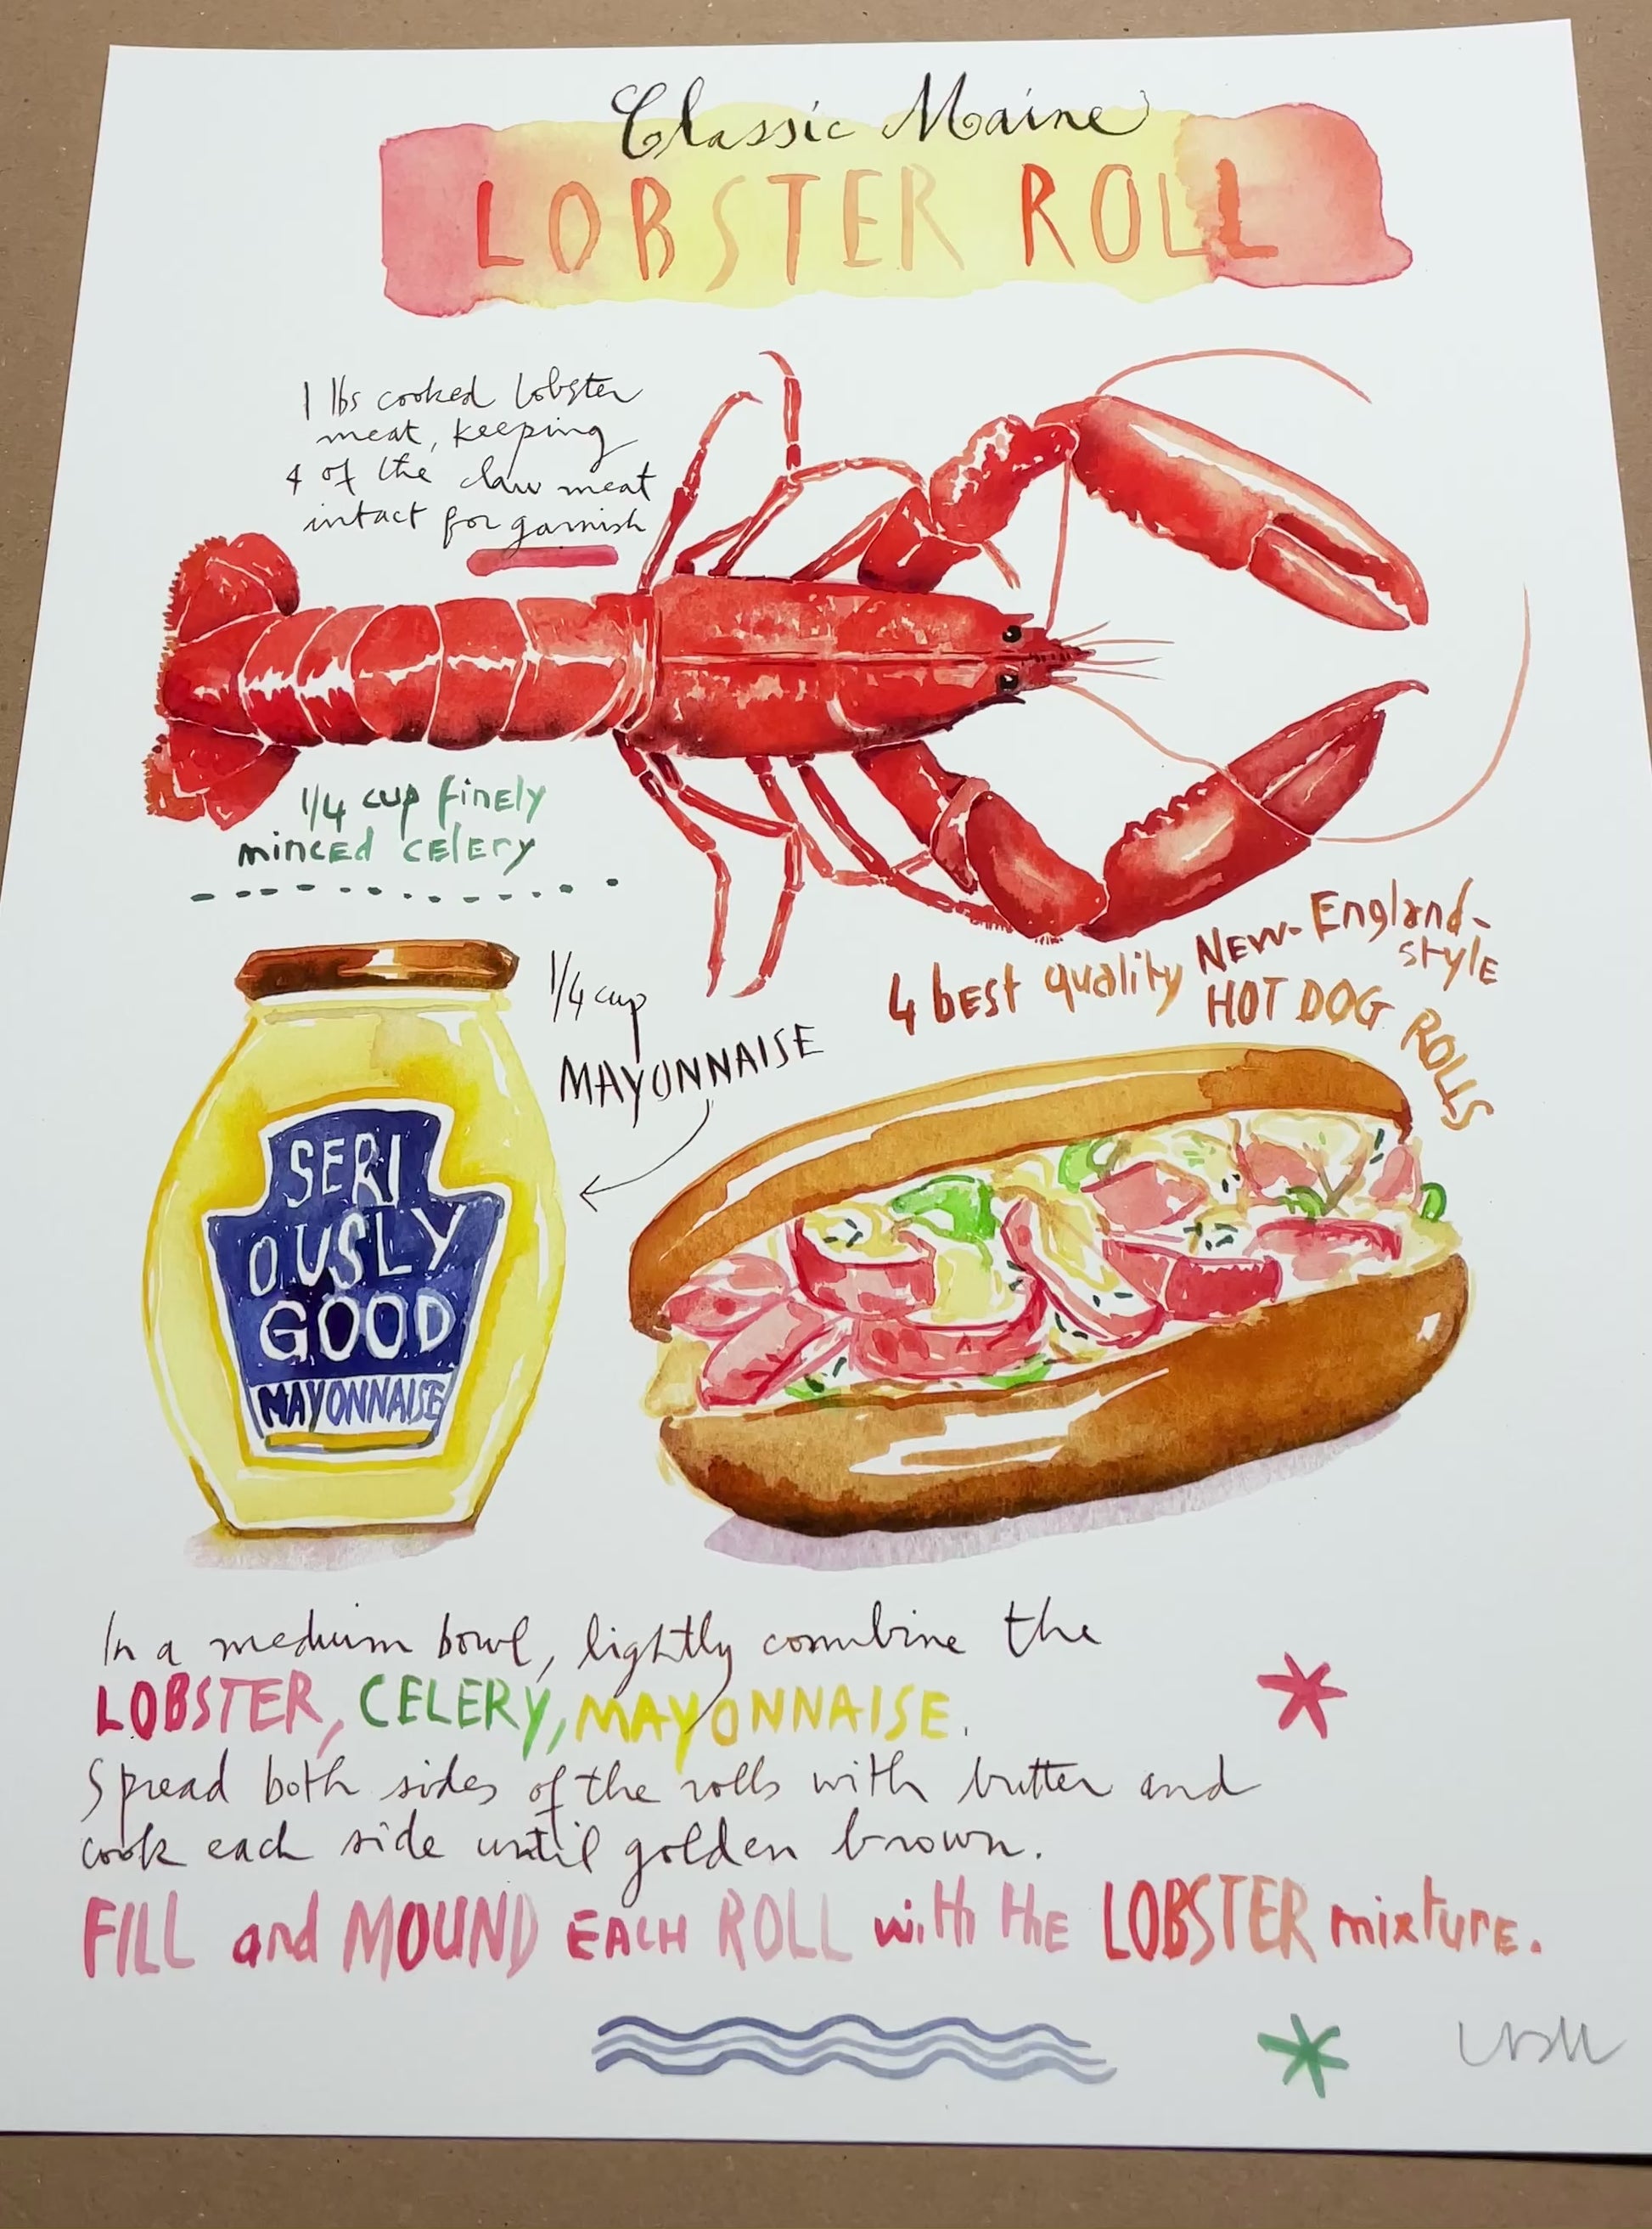 Classic Maine
LOBSTER ROLL
1 lbs cooked lobster
meat, keeping
4 of the claw meat
intact for garnish
1/4 cup finely
minced celery
1/4 cup
MAYONNAISE
4 best quality New-England-
style
HOT DOG ROLLS
SERI
OUSLY
GOOD
MAYONNAISE
In a medium bowl, lightly combine the
LOBSTER, CELERY, MAYONNAISE.
Spread both sides of the rolls with butter and
cook each side until golden brown.
FILL and MOUND EACH ROLL with the LOBSTER mixture.